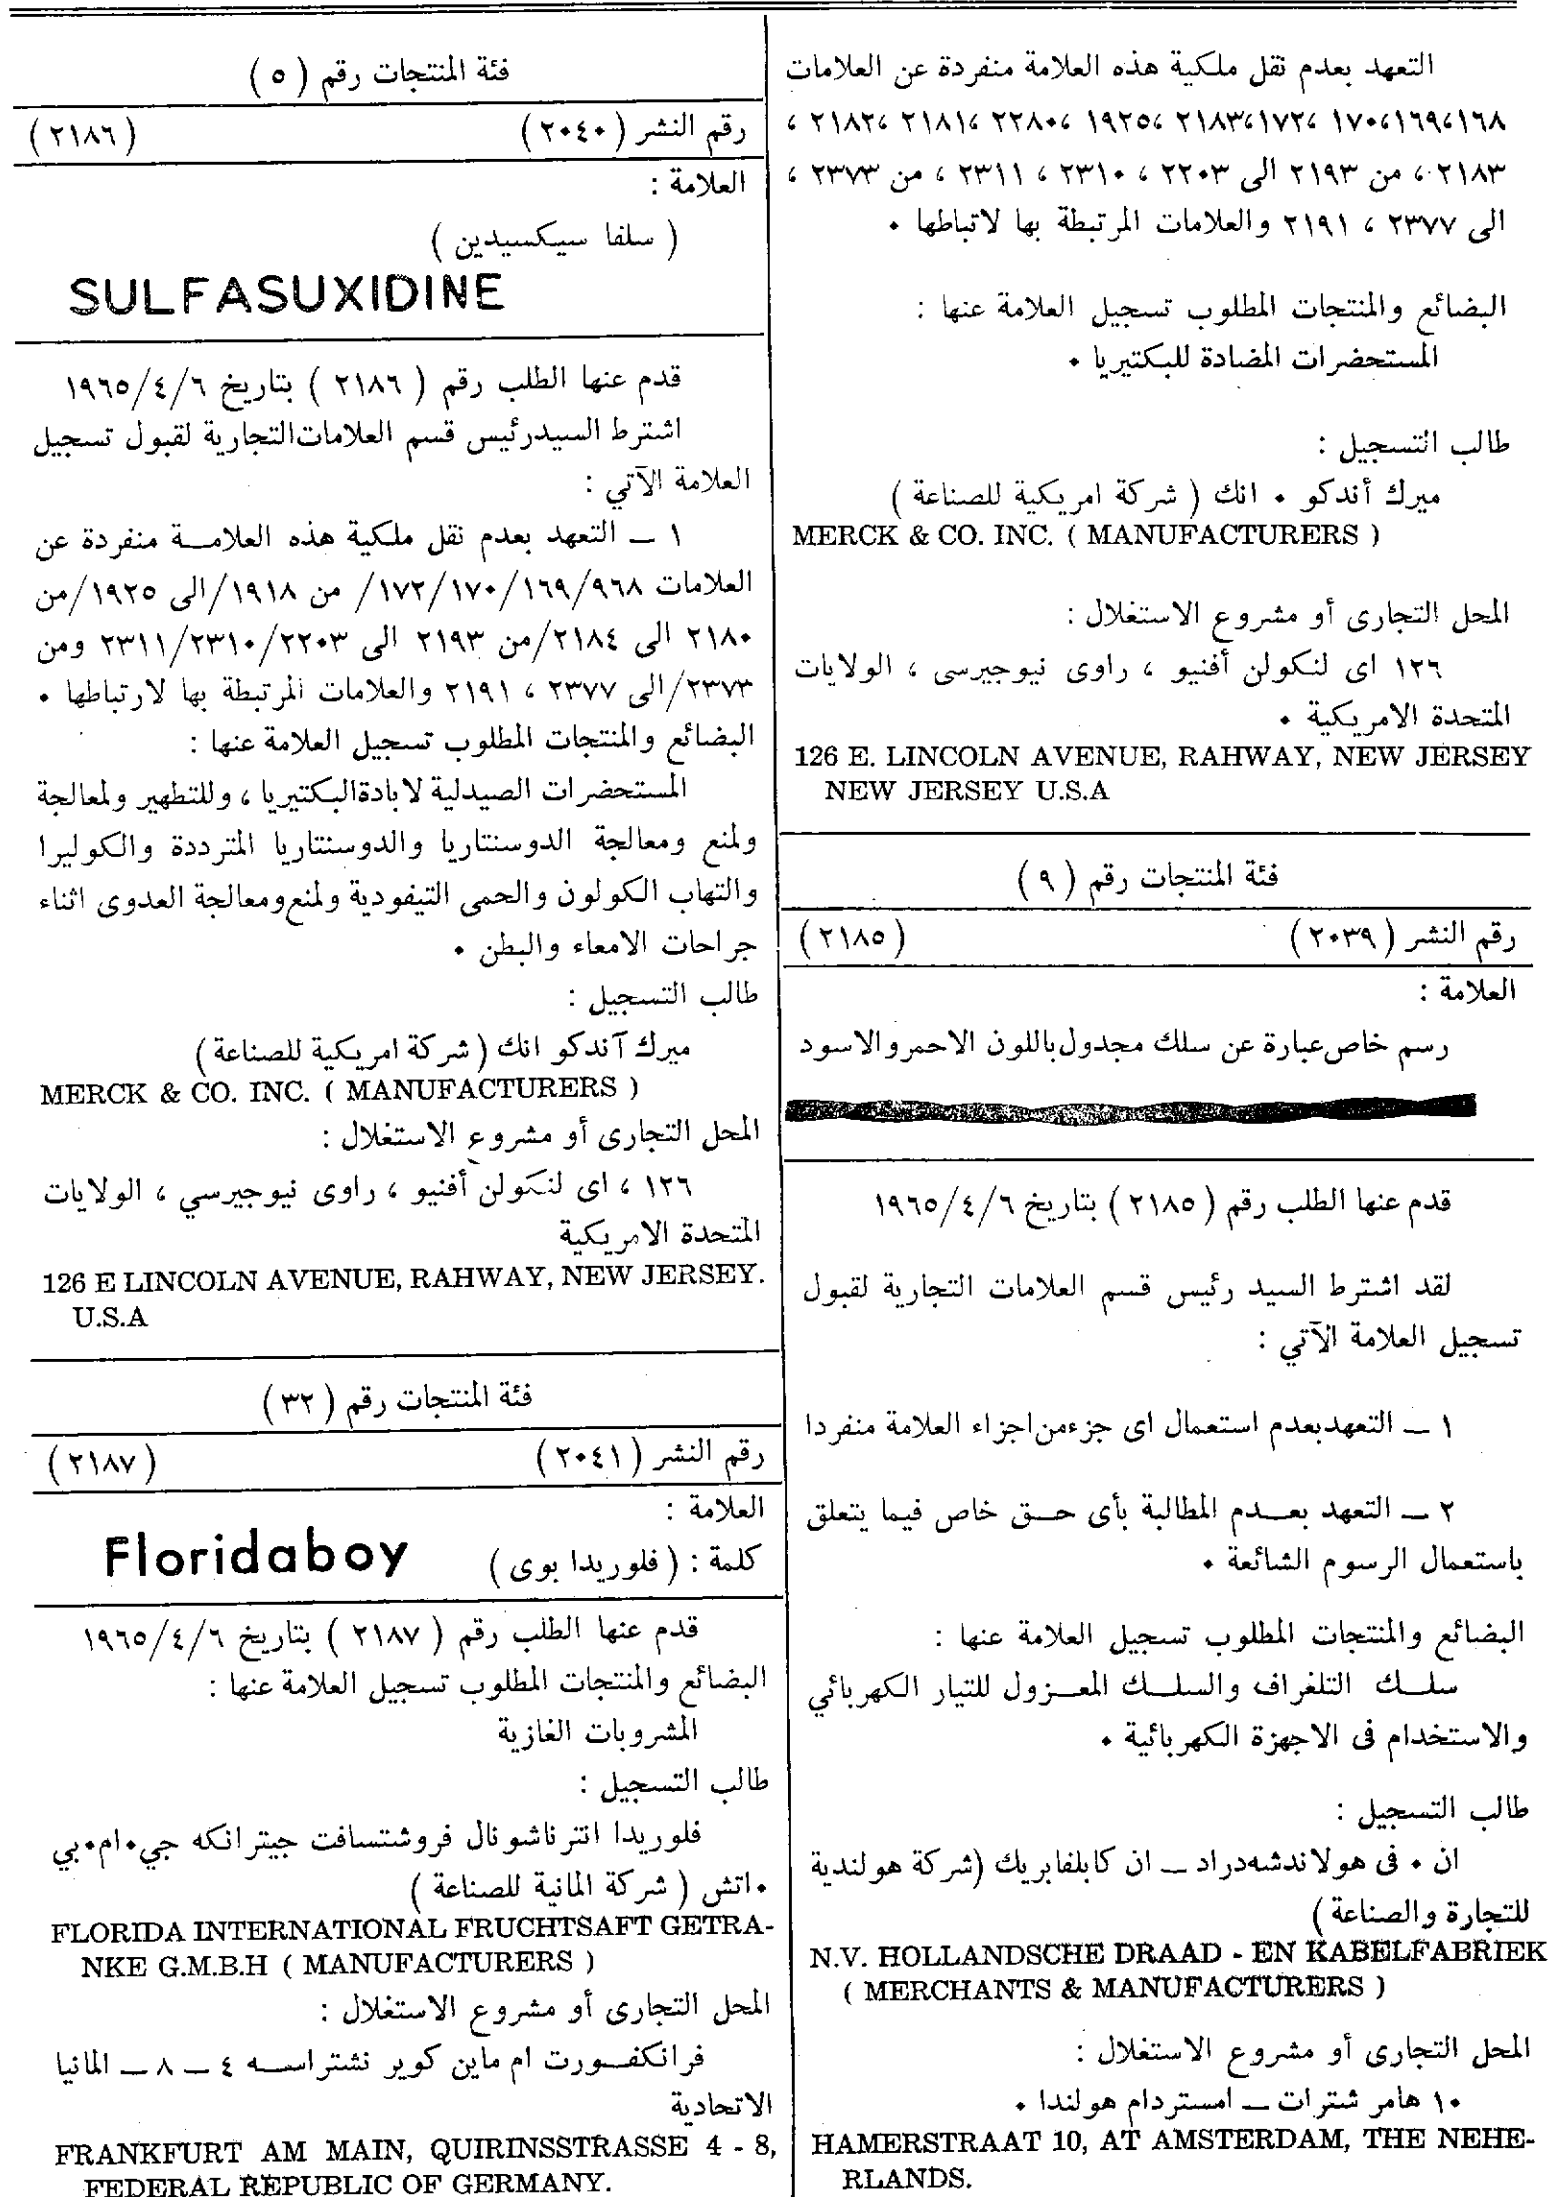 التعهد بعدم نقل ملكية هذه العلامة منفردة عن العلامات
١٦٨،١٦٩،١٧٠، ١٧٢،٢١٨٣، ١٩٢٥، ٢٢٨٠، ٢١٨١، ٢١٨٢ ،
٢١٨٣ ، من ٢١٩٣ الى ٢٢٠٣ ، ٢٣١٠ ، ٢٣١١ ، من ٢٣٧٣ ،
الى ٢٣٧٧ ، ٢١٩١ والعلامات المرتبطة بها لاتباطها ٠
البضائع والمنتجات المطلوب تسجيل العلامة عنها :
المستحضرات المضادة للبكتيريا ٠
طالب التسجيل :
ميرك أندكو ٠ انك ( شركة امريكية للصناعة )
MERCK & CO. INC. ( MANUFACTURERS )
المحل التجارى أو مشروع الاستغلال :
١٢٦ اى لنكولن أفنيو ، راوى نيوجيرسى ، الولايات
المتحدة الامريكية ٠
126 E. LINCOLN AVENUE, RAHWAY, NEW JERSEY
NEW JERSEY U.S.A
فئة المنتجات رقم ( ٩ )
رقم النشر ( ٢٠٣٩ ) ( ٢١٨٥ )
العلامة :
رسم خاص عبارة عن سلك مجدول باللون الاحمر والاسود
قدم عنها الطلب رقم ( ٢١٨٥ ) بتاريخ ١٩٦٥/٤/٦
لقد اشترط السيد رئيس قسم العلامات التجارية لقبول
تسجيل العلامة الآتي :
١ ــ التعهد بعدم استعمال اى جزء من اجزاء العلامة منفردا
٢ ــ التعهد بعــدم المطالبة بأى حــق خاص فيما يتعلق
باستعمال الرسوم الشائعة ٠
البضائع والمنتجات المطلوب تسجيل العلامة عنها :
سلــك التلغراف والسلــك المعــزول للتيار الكهربائي
والاستخدام فى الاجهزة الكهربائية ٠
طالب التسجيل :
ان ٠ فى هولاندشه دراد ــ ان كابلفابريك (شركة هولندية
للتجارة والصناعة )
N.V. HOLLANDSCHE DRAAD - EN KABELFABRIEK
( MERCHANTS & MANUFACTURERS )
المحل التجارى أو مشروع الاستغلال :
١٠ هامر شترات ــ امستردام هولندا ٠
HAMERSTRAAT 10, AT AMSTERDAM, THE NEHE-
RLANDS.
فئة المنتجات رقم ( ٥ )
رقم النشر ( ٢٠٤٠ ) ( ٢١٨٦ )
العلامة :
( سلفا سيكسيدين )
SULFASUXIDINE
قدم عنها الطلب رقم ( ٢١٨٦ ) بتاريخ ١٩٦٥/٤/٦
اشترط السيد رئيس قسم العلامات التجارية لقبول تسجيل
العلامة الآتي :
١ ــ التعهد بعدم نقل ملكية هذه العلامــة منفردة عن
العلامات ٩٦٨/١٦٩/١٧٠/١٧٢/ من ١٩١٨/الى ١٩٢٥/من
٢١٨٠ الى ٢١٨٤/من ٢١٩٣ الى ٢٢٠٣/٢٣١٠/٢٣١١ ومن
٢٣٧٣/الى ٢٣٧٧ ، ٢١٩١ والعلامات المرتبطة بها لارتباطها ٠
البضائع والمنتجات المطلوب تسجيل العلامة عنها :
المستحضرات الصيدلية لابادة البكتيريا ، وللتطهير ولمعالجة
ولمنع ومعالجة الدوسنتاريا والدوسنتاريا المترددة والكوليرا
والتهاب الكولون والحمى التيفودية ولمنع ومعالجة العدوى اثناء
جراحات الامعاء والبطن ٠
طالب التسجيل :
ميرك آندكو انك ( شركة امريكية للصناعة )
MERCK & CO. INC. ( MANUFACTURERS )
المحل التجارى أو مشروع الاستغلال :
١٢٦ ، اى لنكولن أفنيو ، راوى نيوجيرسي ، الولايات
المتحدة الامريكية
126 E LINCOLN AVENUE, RAHWAY, NEW JERSEY.
U.S.A
فئة المنتجات رقم ( ٣٢ )
رقم النشر ( ٢٠٤١ ) ( ٢١٨٧ )
العلامة :
كلمة : ( فلوريدا بوى ) Floridaboy
قدم عنها الطلب رقم ( ٢١٨٧ ) بتاريخ ١٩٦٥/٤/٦
البضائع والمنتجات المطلوب تسجيل العلامة عنها :
المشروبات الغازية
طالب التسجيل :
فلوريدا انترناشونال فروشتسافت جيترانكه جي٠ام٠بي
٠اتش ( شركة المانية للصناعة )
FLORIDA INTERNATIONAL FRUCHTSAFT GETRA-
NKE G.M.B.H ( MANUFACTURERS )
المحل التجارى أو مشروع الاستغلال :
فرانكفــورت ام ماين كوير نشتراســه ٤ ــ ٨ ــ المانيا
الاتحادية
FRANKFURT AM MAIN, QUIRINSSTRASSE 4 - 8,
FEDERAL REPUBLIC OF GERMANY.